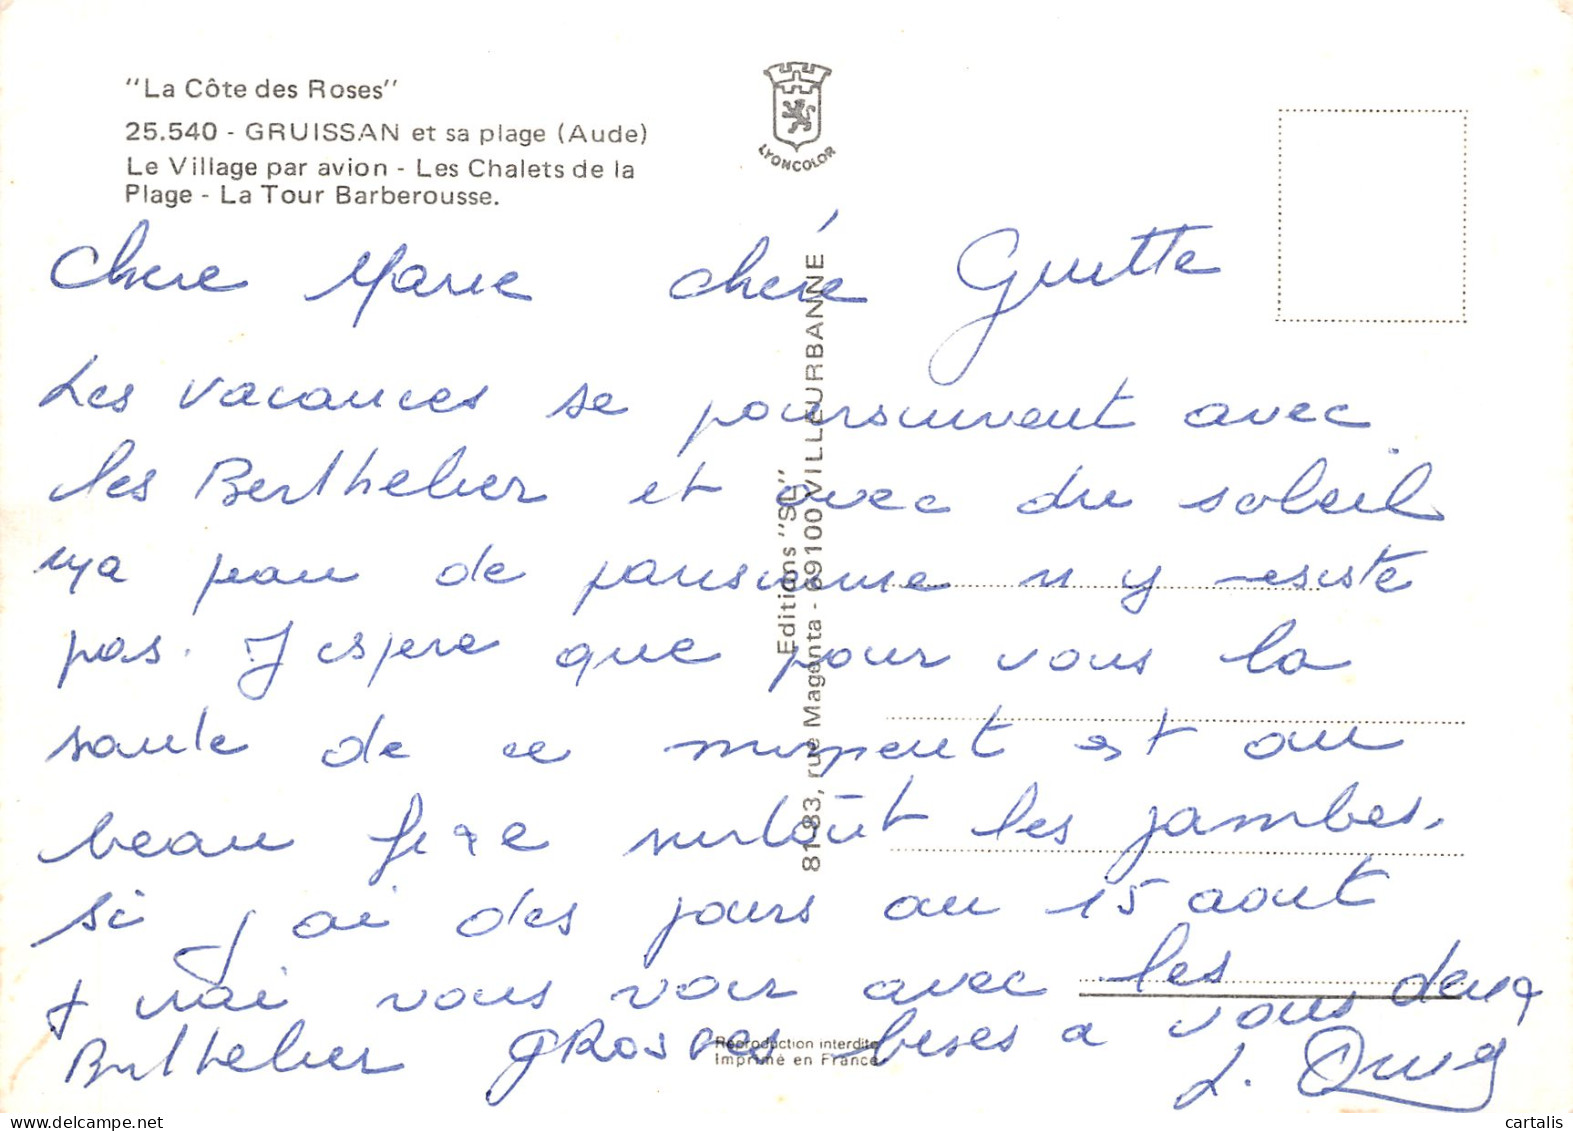 "La Côte des Roses"
25.540 - GRUISSAN et sa plage (Aude)
Le Village par avion - Les Chalets de la
Plage - La Tour Barberousse.
LYONCOLOR
Chere Marie chére Guitte
Les vacances se poursuivent avec
les Berthelier et avec du soleil
mya peau de parisienne n y resiste
pas. J espere que pour vous la
sante de ce moment est au
beau fixe surtout les jambes.
si j ai des jours au 15 aout
j irai vous voir avec les deux
Berthelier GRosses bises a vous
L.
Editions "SL"
81-83, rue Magenta - 69100 VILLEURBANNE
Reproduction interdite
Imprimé en France
cartalis